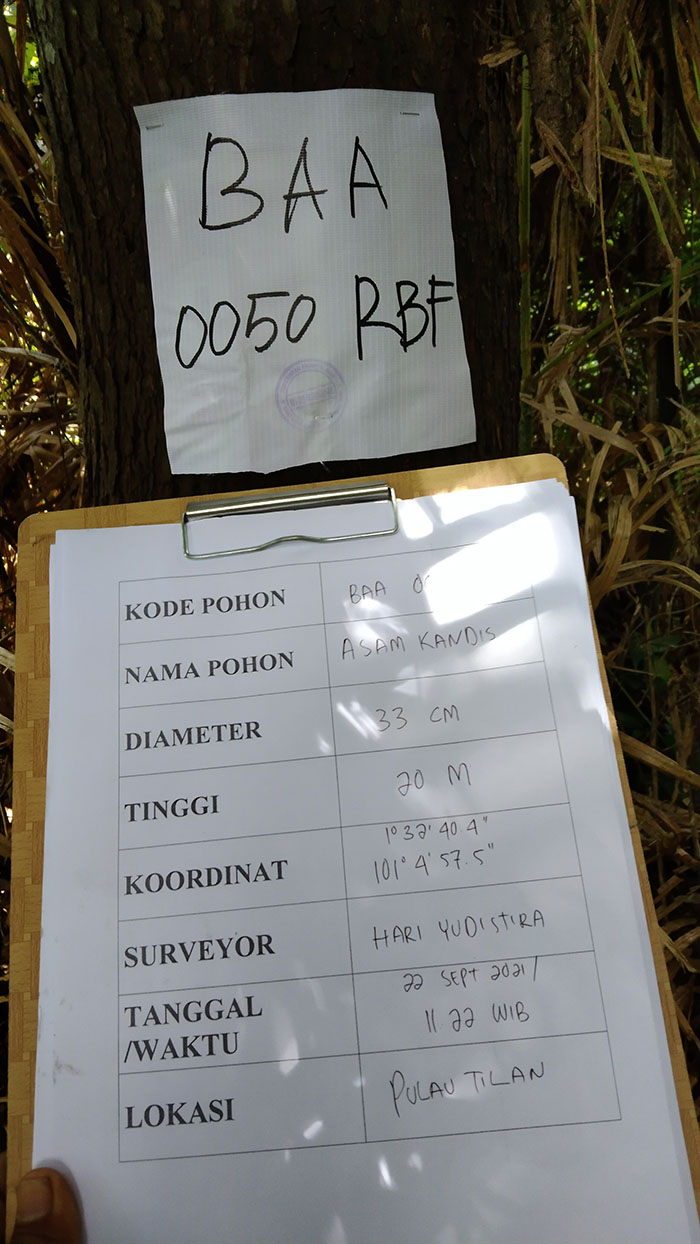 BAA
0050 RBF
KODE POHON BAA
NAMA POHON ASAM KANDIS
DIAMETER 33 CM
TINGGI 20 M
KOORDINAT 1° 32' 40.4"
101° 4' 57.5"
SURVEYOR HARI YUDISTIRA
TANGGAL 22 SEPT 2021/
/WAKTU 11.22 WIB
LOKASI PULAU TILAN